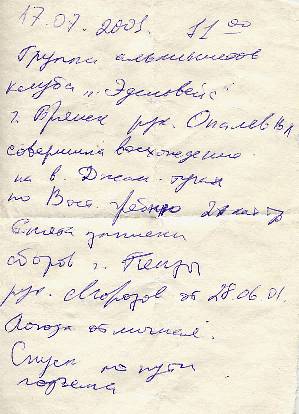 17.07.2001. 11 00
Группа альпинистов
клуба "Эдельвейс"
г. Брянск рук. Опалев
совершила восхождение
на в. Джан-туган
по Вост. гребню 2
Снята записка
сборов г. Пензы
рук. от 28.06.01.
Погода отличная.
Спуск по пути
подъема